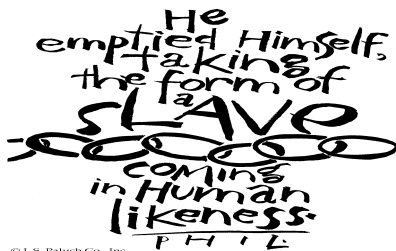 He
emptied Himself,
taking
the form of
a
sLAVe
coming
in Human
likeness.
PHIL.
© J. S. Paluch Co., Inc.